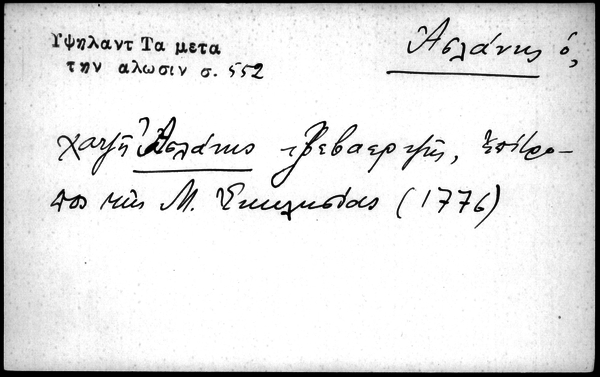 Υψηλαντ Τα μετα
την αλωσιν σ. 552
Ἀσλάνης ὁ,
χατζῆ Ἀσλάνης τζεβαερτζῆς, ἐπίτρο-
πος τῆς Μ. Ἐκκλησίας (1776)